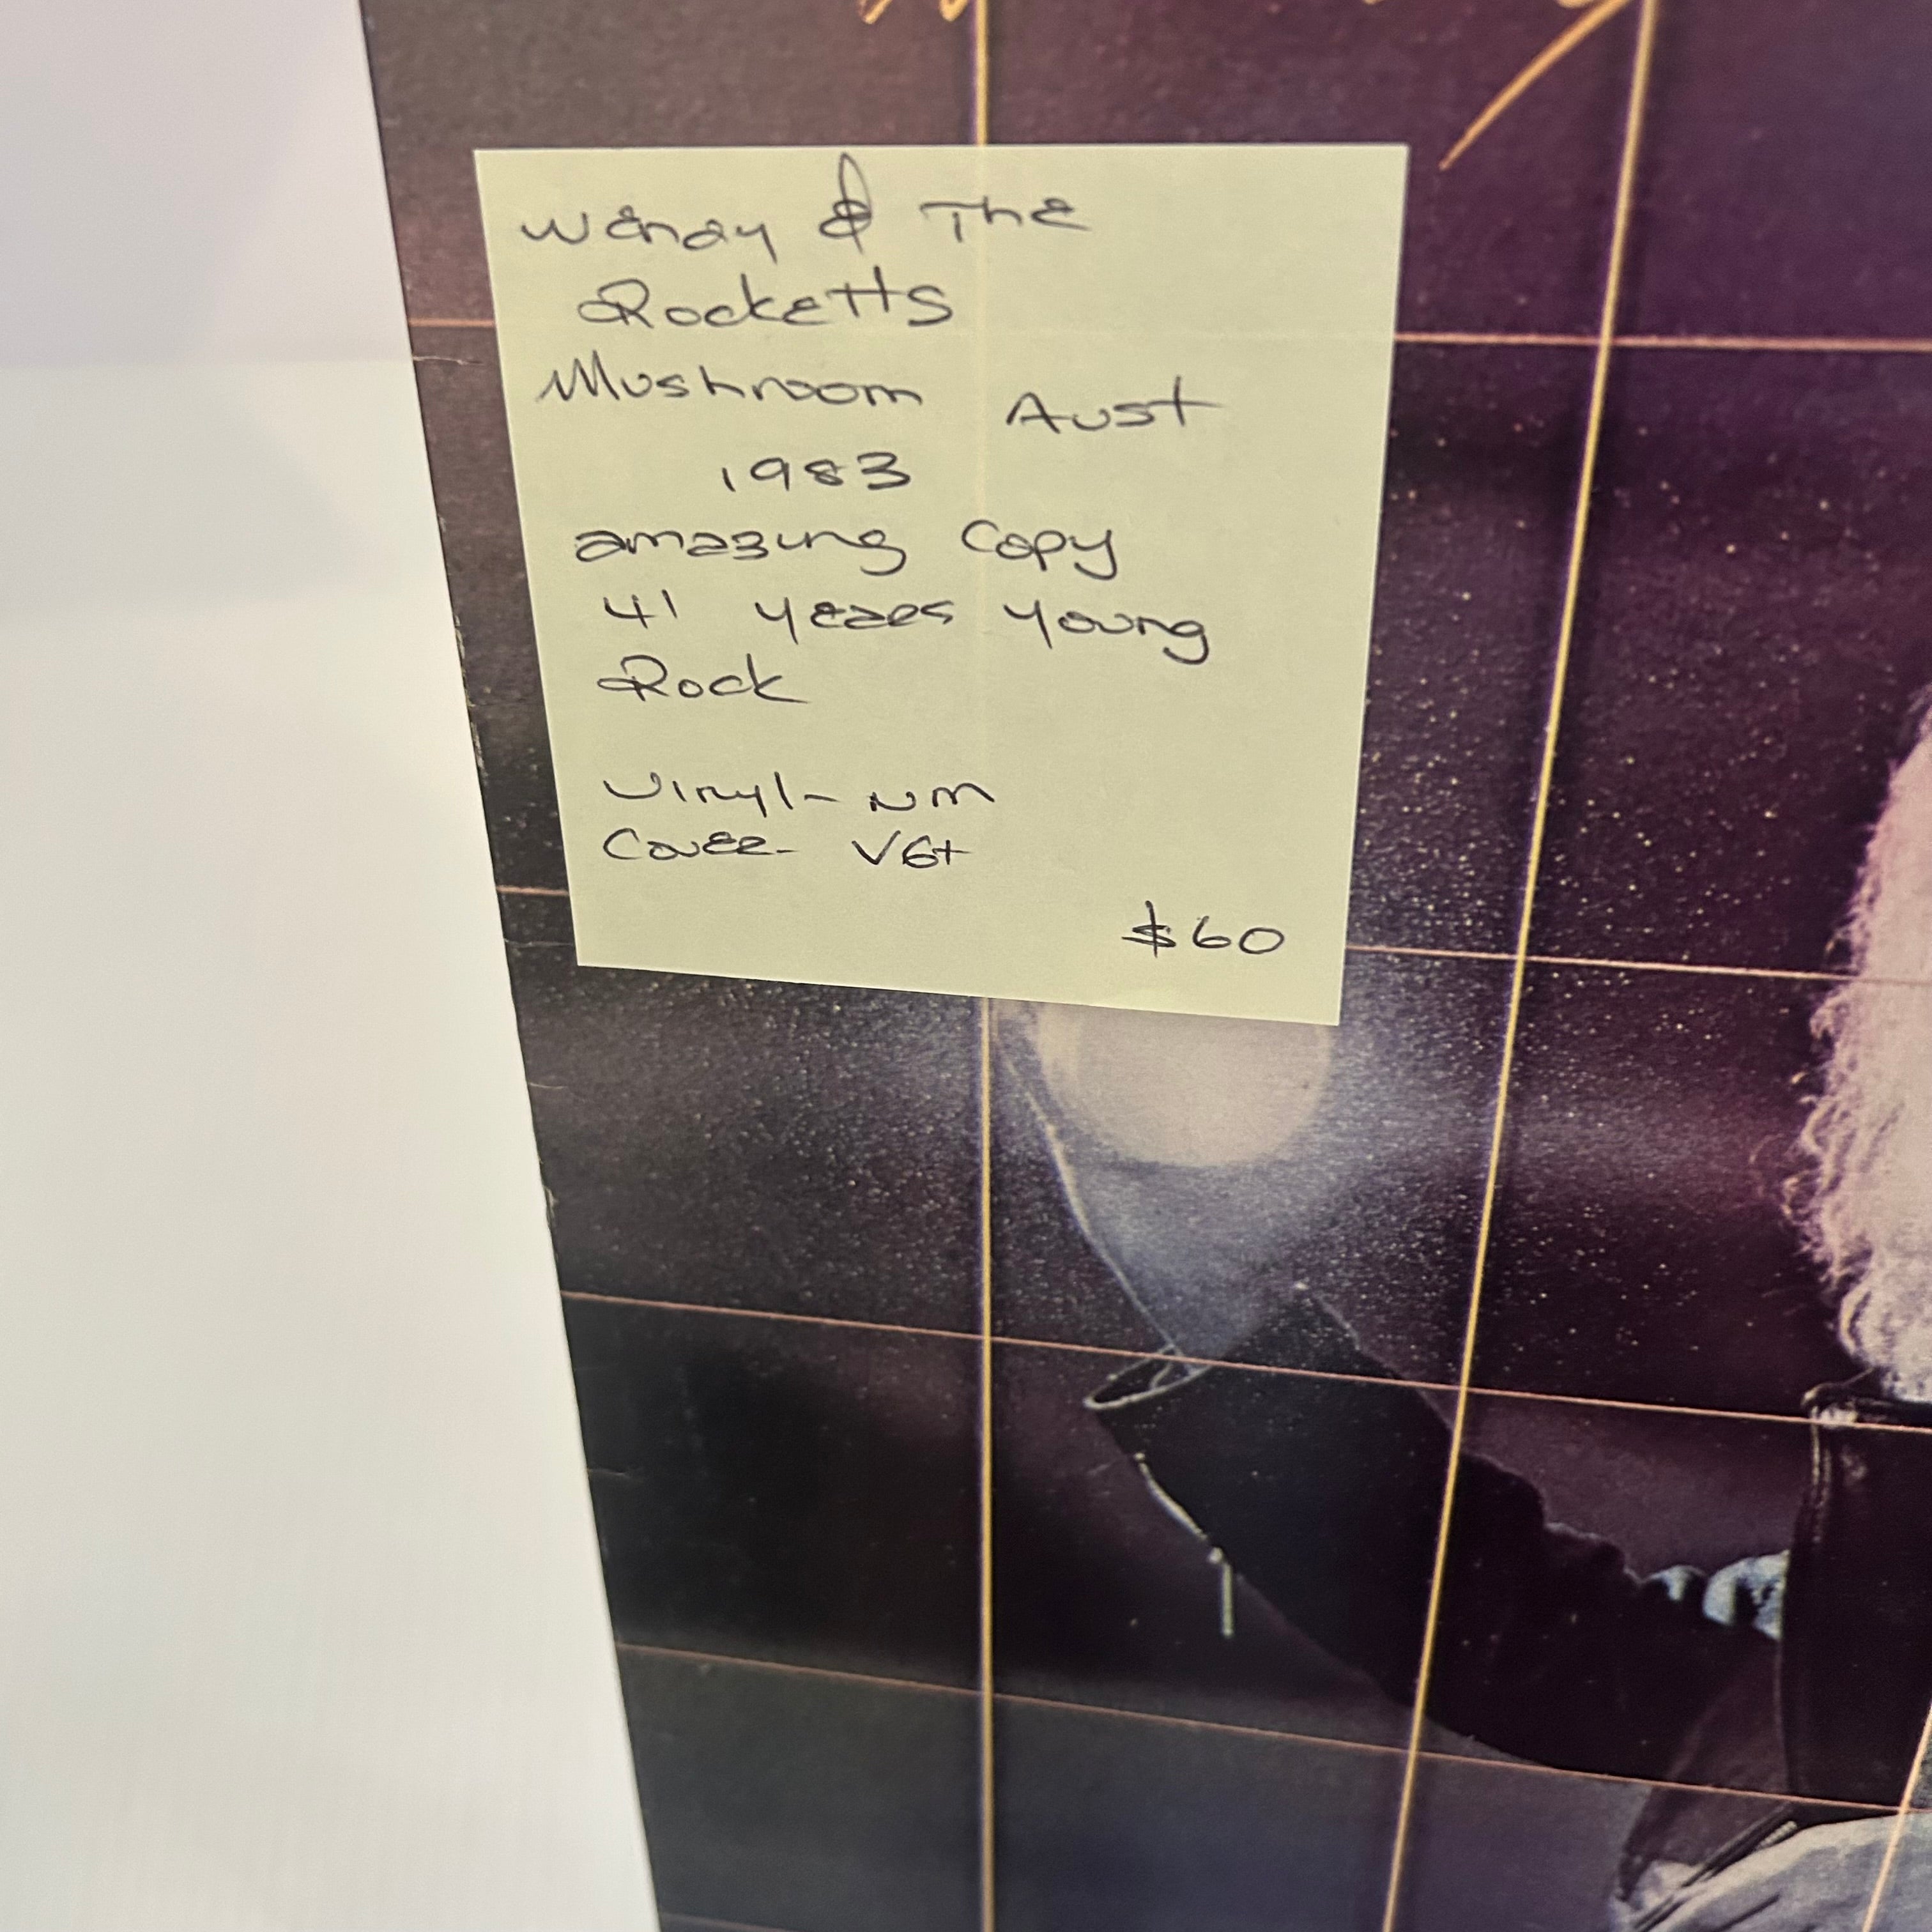 Wendy & The
Rocketts
Mushroom Aust
1983
amazing Copy
41 years young
Rock
Vinyl - NM
Cover - VG+
$60